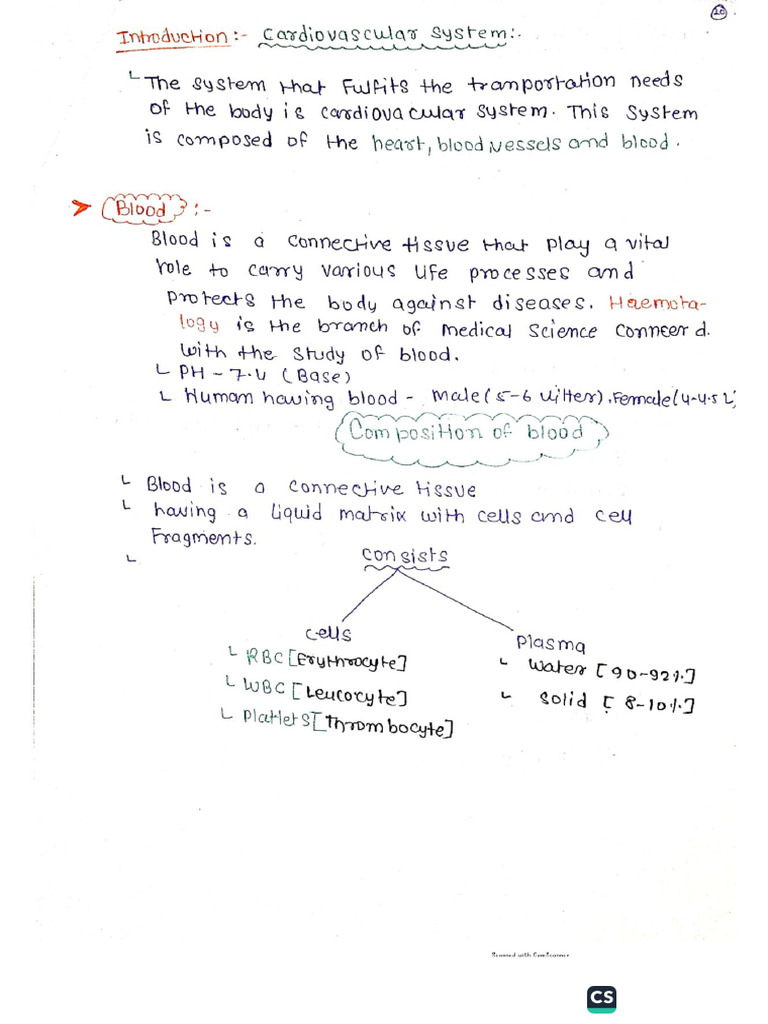 20
Introduction:- Cardiovascular System:-
The system that Fulfits the tranportation needs
of the body is cardiovacular system. This system
is composed of the heart, blood vessels and blood.
Blood :-
Blood is a connective tissue that play a vital
role to carry various life processes and
protects the body against diseases. Haemota-
logy is the branch of Medical Science Conneerd.
with the study of blood.
PH - 7.4 (Base)
Human having blood - Male (5-6 liter). Female (4-4.5 L)
Composition of blood
Blood is a connective tissue
having a liquid matrix with cells and cell
Fragments.
consists
cells
Plasma
RBC [Erythrocyte]
Water [90-92%]
WBC [Leucocyte]
Solid [8-10%]
Platlets [Thrombocyte]
Scanned with CamScanner
CS